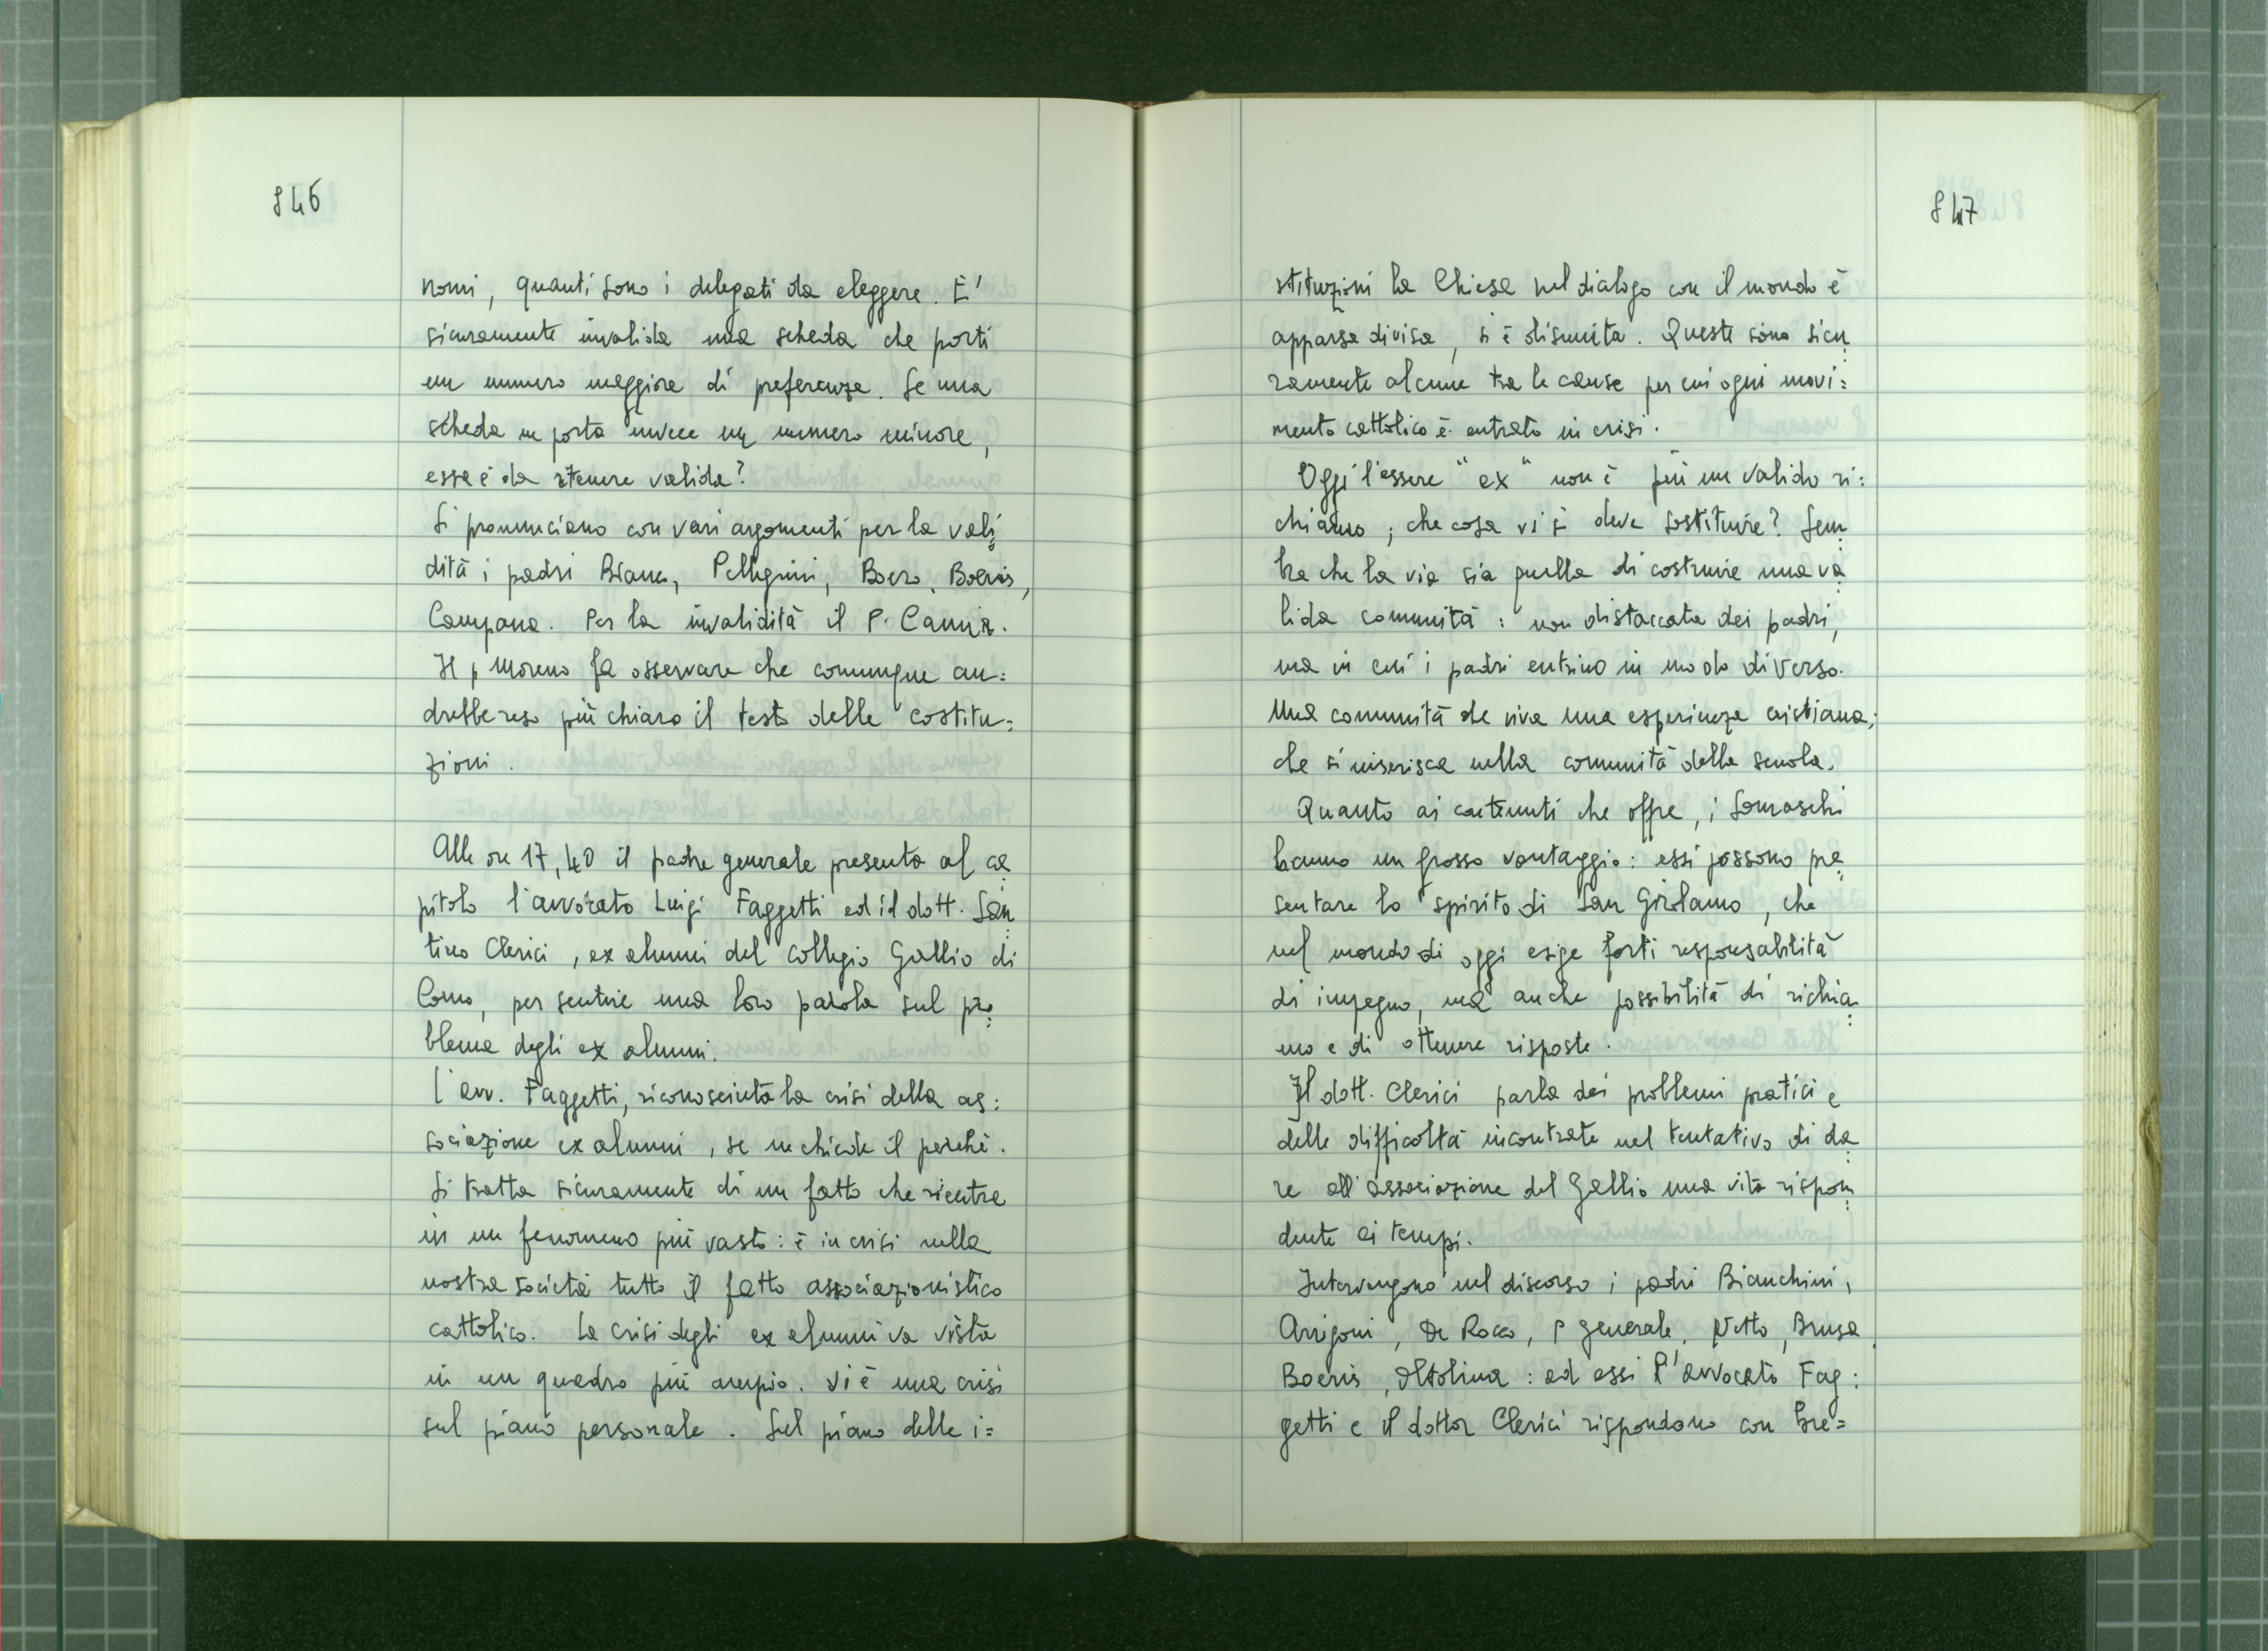 846
nomi, quanti sono i delegati da eleggere. E'
sicuramente invalida una scheda che porti
un numero maggiore di preferenze. Se una
scheda ne porta invece un numero minore,
essa è da ritenere valida?
Si pronunciano con vari argomenti per la vali
dità i padri Bianco, Pellegrini, Boero, Boeris,
Campana. Per la invalidità il P. Camia.
Il p Moreno fa osservare che comunque an=
drebbe reso più chiaro il testo delle costitu=
zioni.
Alle ore 17,40 il padre generale presenta al ca
pitolo l'avvocato Luigi Faggetti ed il dott. San
tino Clerici, ex alunni del collegio Gallio di
Como, per sentire una loro parola sul pro
blema degli ex alunni.
L'avv. Faggetti, riconosciuta la crisi della as=
sociazione ex alunni, se ne chiede il perchè.
Si tratta sicuramente di un fatto che rientra
in un fenomeno più vasto: è in crisi nella
nostra società tutto il fatto associazionistico
cattolico. La crisi degli ex alunni va vista
in un quadro più ampio. Vi è una crisi
sul piano personale. Sul piano delle i=
847
stituzioni la Chiesa nel dialogo con il mondo è
apparsa divisa, si è disunita. Queste sono sicu
ramente alcune tra le cause per cui ogni movi=
mento cattolico è entrato in crisi.
Oggi l'essere "ex" non è più un valido ri=
chiamo; che cosa vi si deve sostituire? Sem
bra che la via sia quella di costruire una va
lida comunità: non distaccata dai padri,
ma in cui i padri entrino in modo diverso.
Una comunità che viva una esperienza cristiana;
che si inserisca nella comunità della scuola.
Quanto ai contenuti che offre, i Somaschi
hanno un grosso vantaggio: essi possono pre
sentare lo spirito di San Girolamo, che
nel mondo di oggi esige forti responsabilità
di impegno, ma anche possibilità di richia
mo e di ottenere risposte.
Il dott. Clerici parla dei problemi pratici e
delle difficoltà incontrate nel tentativo di da
re all'associazione del Gallio una vita rispon
dente ai tempi.
Intervengono nel discorso i padri Bianchini,
Arrigoni, De Rocco, P generale, Netto, Brusa
Boeris, Oltolina: ad essi l'avvocato Fag=
getti e il dottor Clerici rispondono con bre=